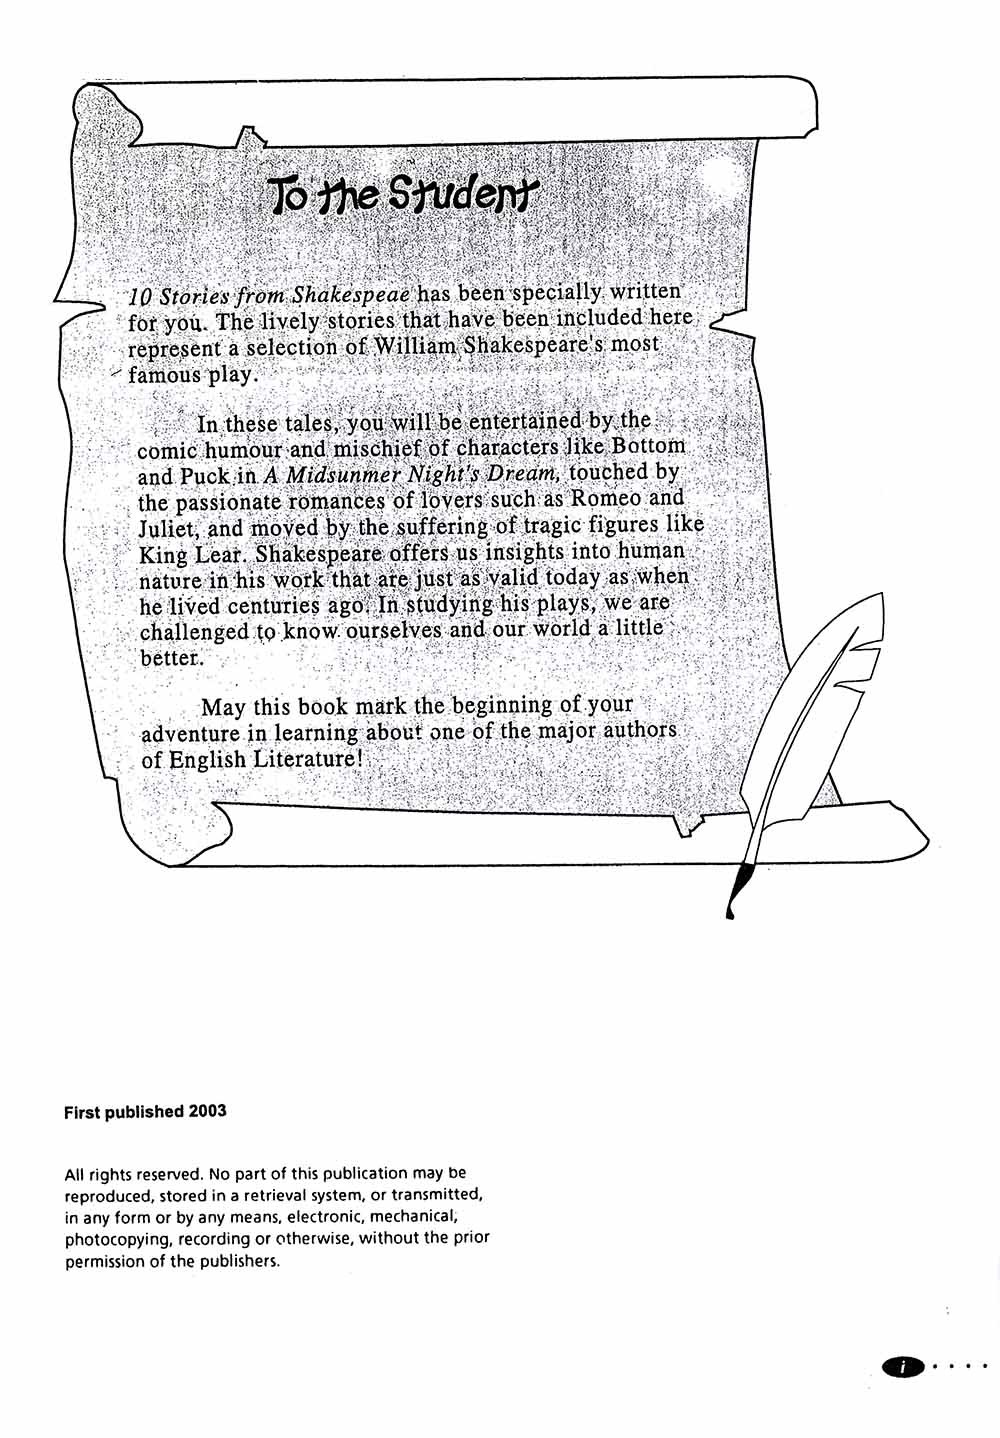 To the Student
10 Stories from Shakespeae has been specially written
for you. The lively stories that have been included here
represent a selection of William Shakespeare's most
famous play.
In these tales, you will be entertained by the
comic humour and mischief of characters like Bottom
and Puck in A Midsunmer Night's Dream, touched by
the passionate romances of lovers such as Romeo and
Juliet, and moved by the suffering of tragic figures like
King Lear. Shakespeare offers us insights into human
nature in his work that are just as valid today as when
he lived centuries ago. In studying his plays, we are
challenged to know ourselves and our world a little
better.
May this book mark the beginning of your
adventure in learning about one of the major authors
of English Literature!
First published 2003
All rights reserved. No part of this publication may be
reproduced, stored in a retrieval system, or transmitted,
in any form or by any means, electronic, mechanical,
photocopying, recording or otherwise, without the prior
permission of the publishers.
i